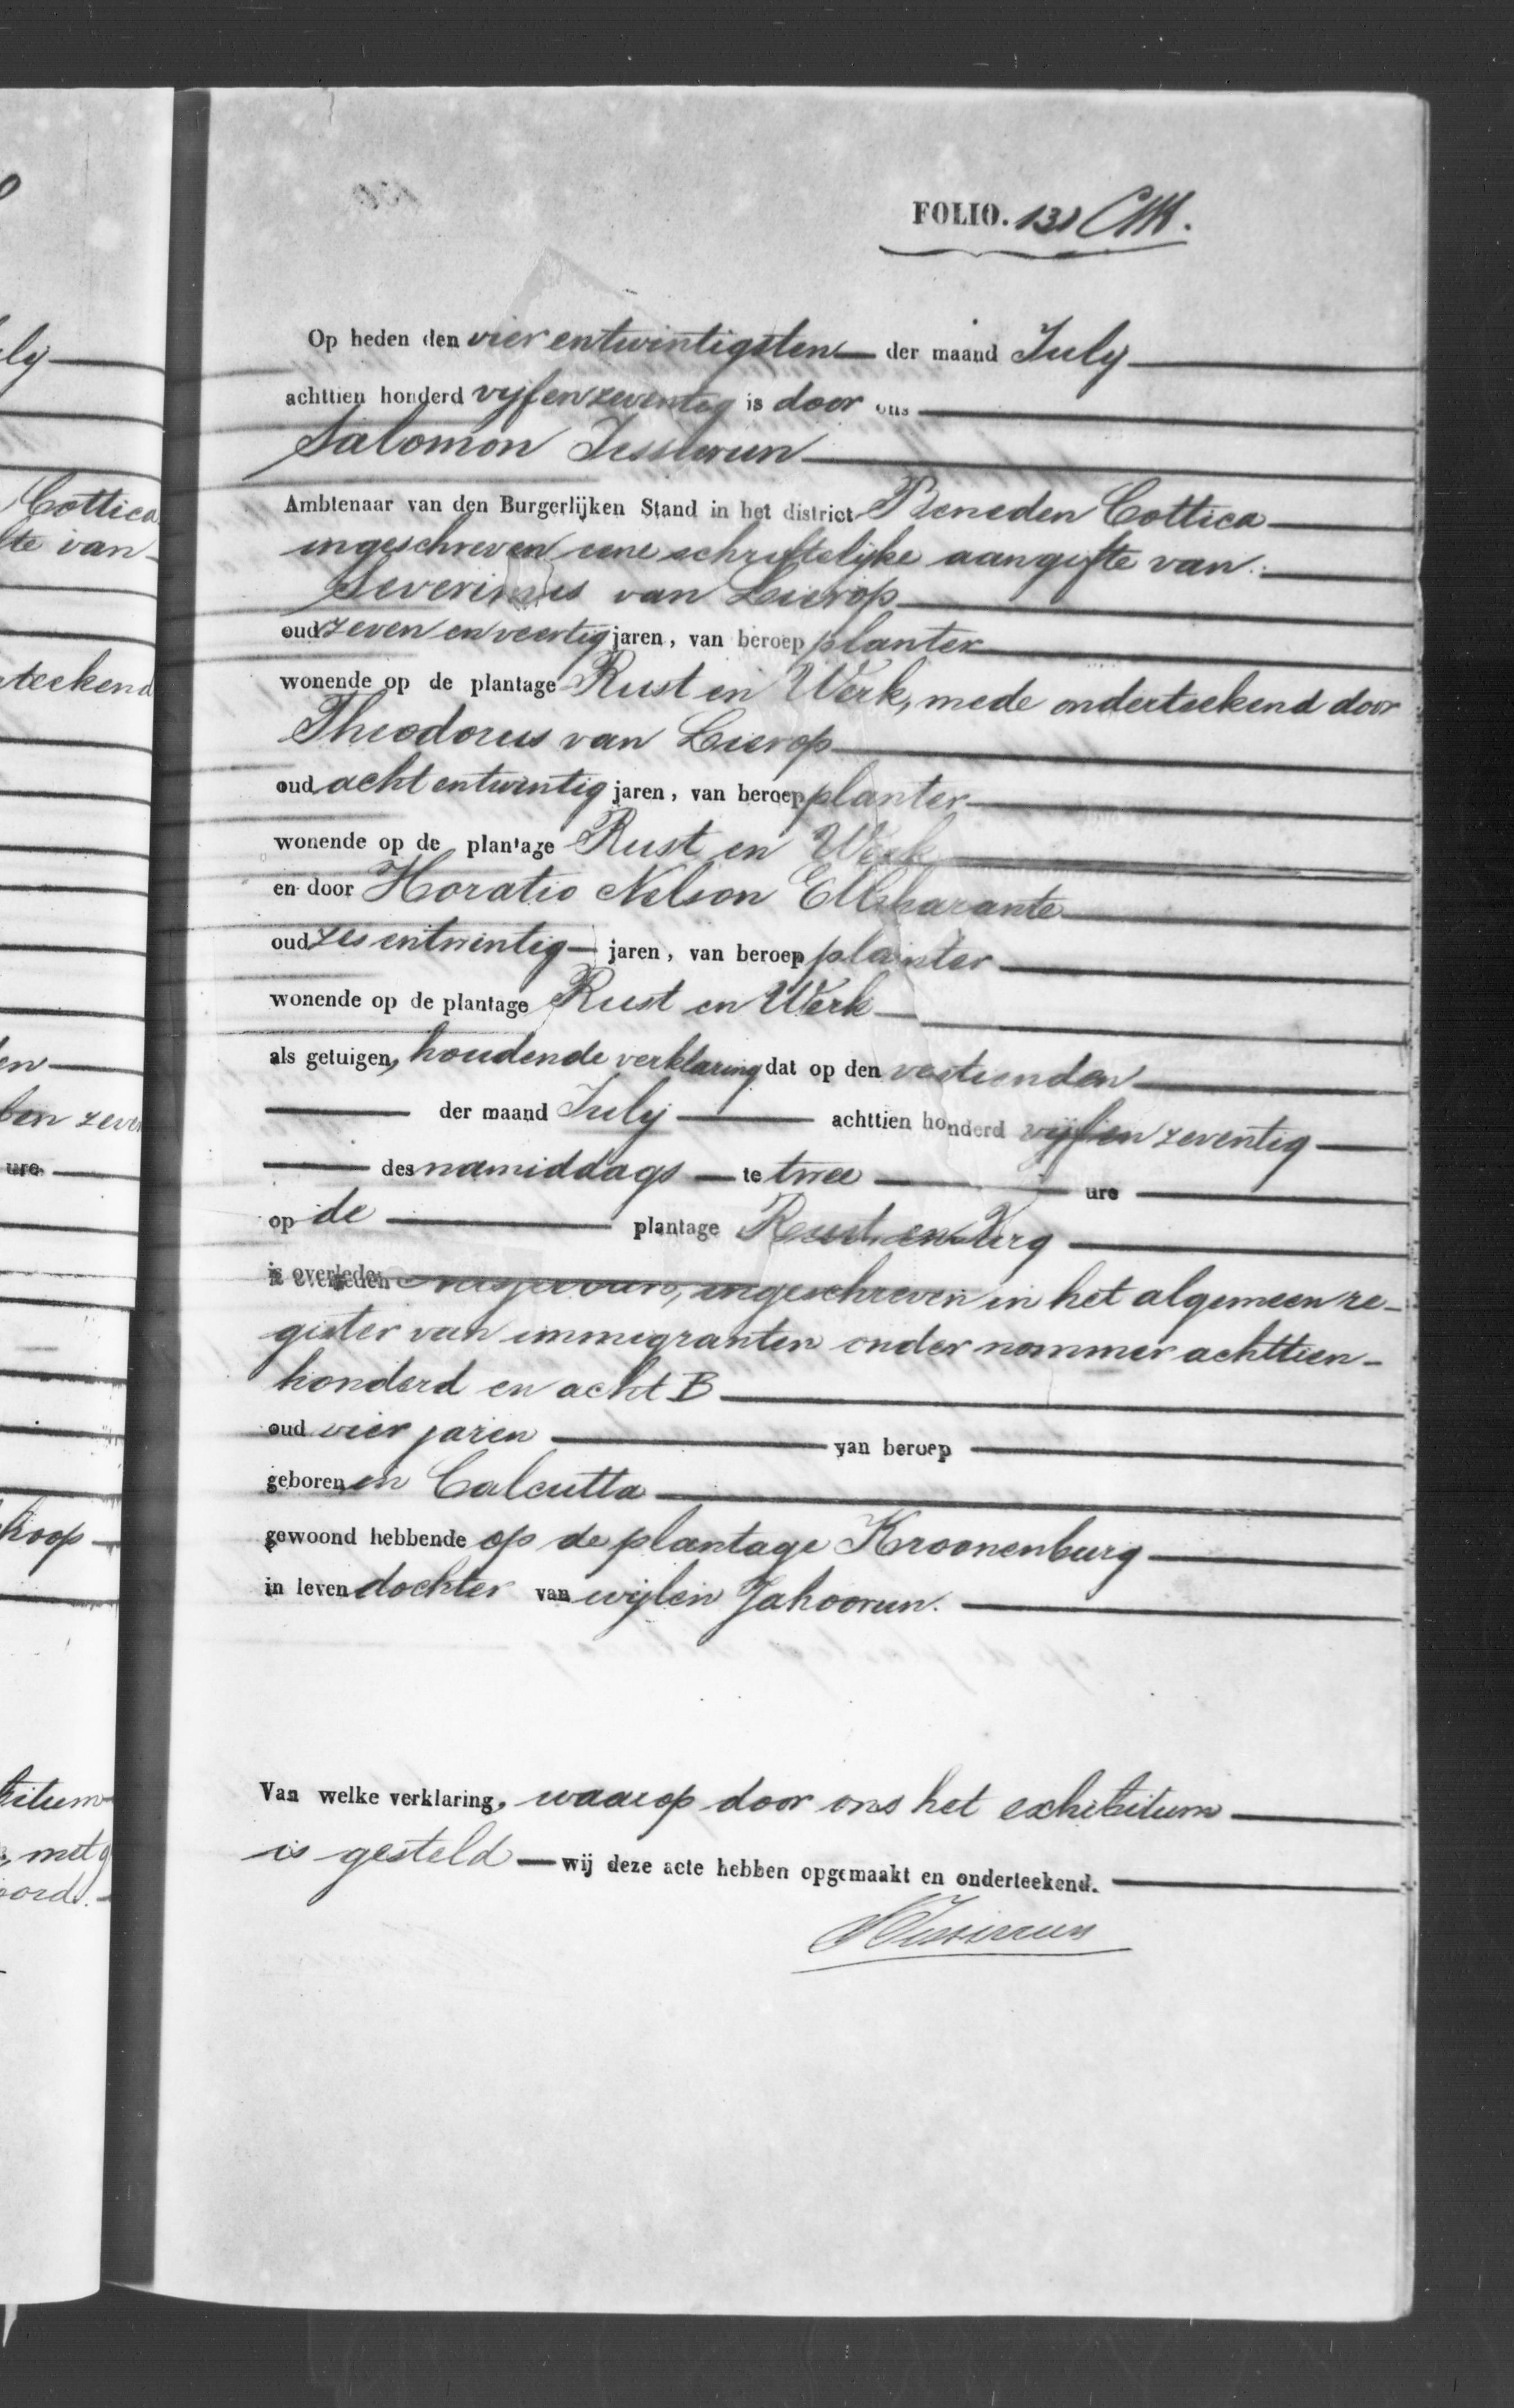 FOLIO. 131
Op heden den vierentwintigsten der maand July
achttien honderd vijfenzeventig is door ons
Salomon Jessurun
Ambtenaar van den Burgerlijken Stand in het district Beneden Cottica
ingeschreven eene schriftelijke aangifte van
Severinus van Lierop
oud zeven en veertig jaren, van beroep planter
wonende op de plantage Rust en Werk, mede onderteekend door
Theodorus van Lierop
oud acht entwintig jaren, van beroep planter
wonende op de plantage Rust en Werk
en door Horatio Nelson
oud zes entwintig jaren, van beroep planter
wonende op de plantage Rust en Werk
als getuigen, houdende verklaring dat op den
der maand July achttien honderd vijfen zeventig
des namiddags te twee ure
op de plantage Rust en Werk
is overleden ingeschreven in het algemeen re-
gister van immigranten onder nommer achttien-
honderd en acht B
oud vier jaren van beroep
geboren in Calcutta
gewoond hebbende op de plantage Kroonenburg
in leven dochter van wijlen Jahoorun.
Van welke verklaring, waarop door ons het exhibitum
is gesteld wij deze acte hebben opgemaakt en onderteekend.
Cottica
te van
teekend
ure